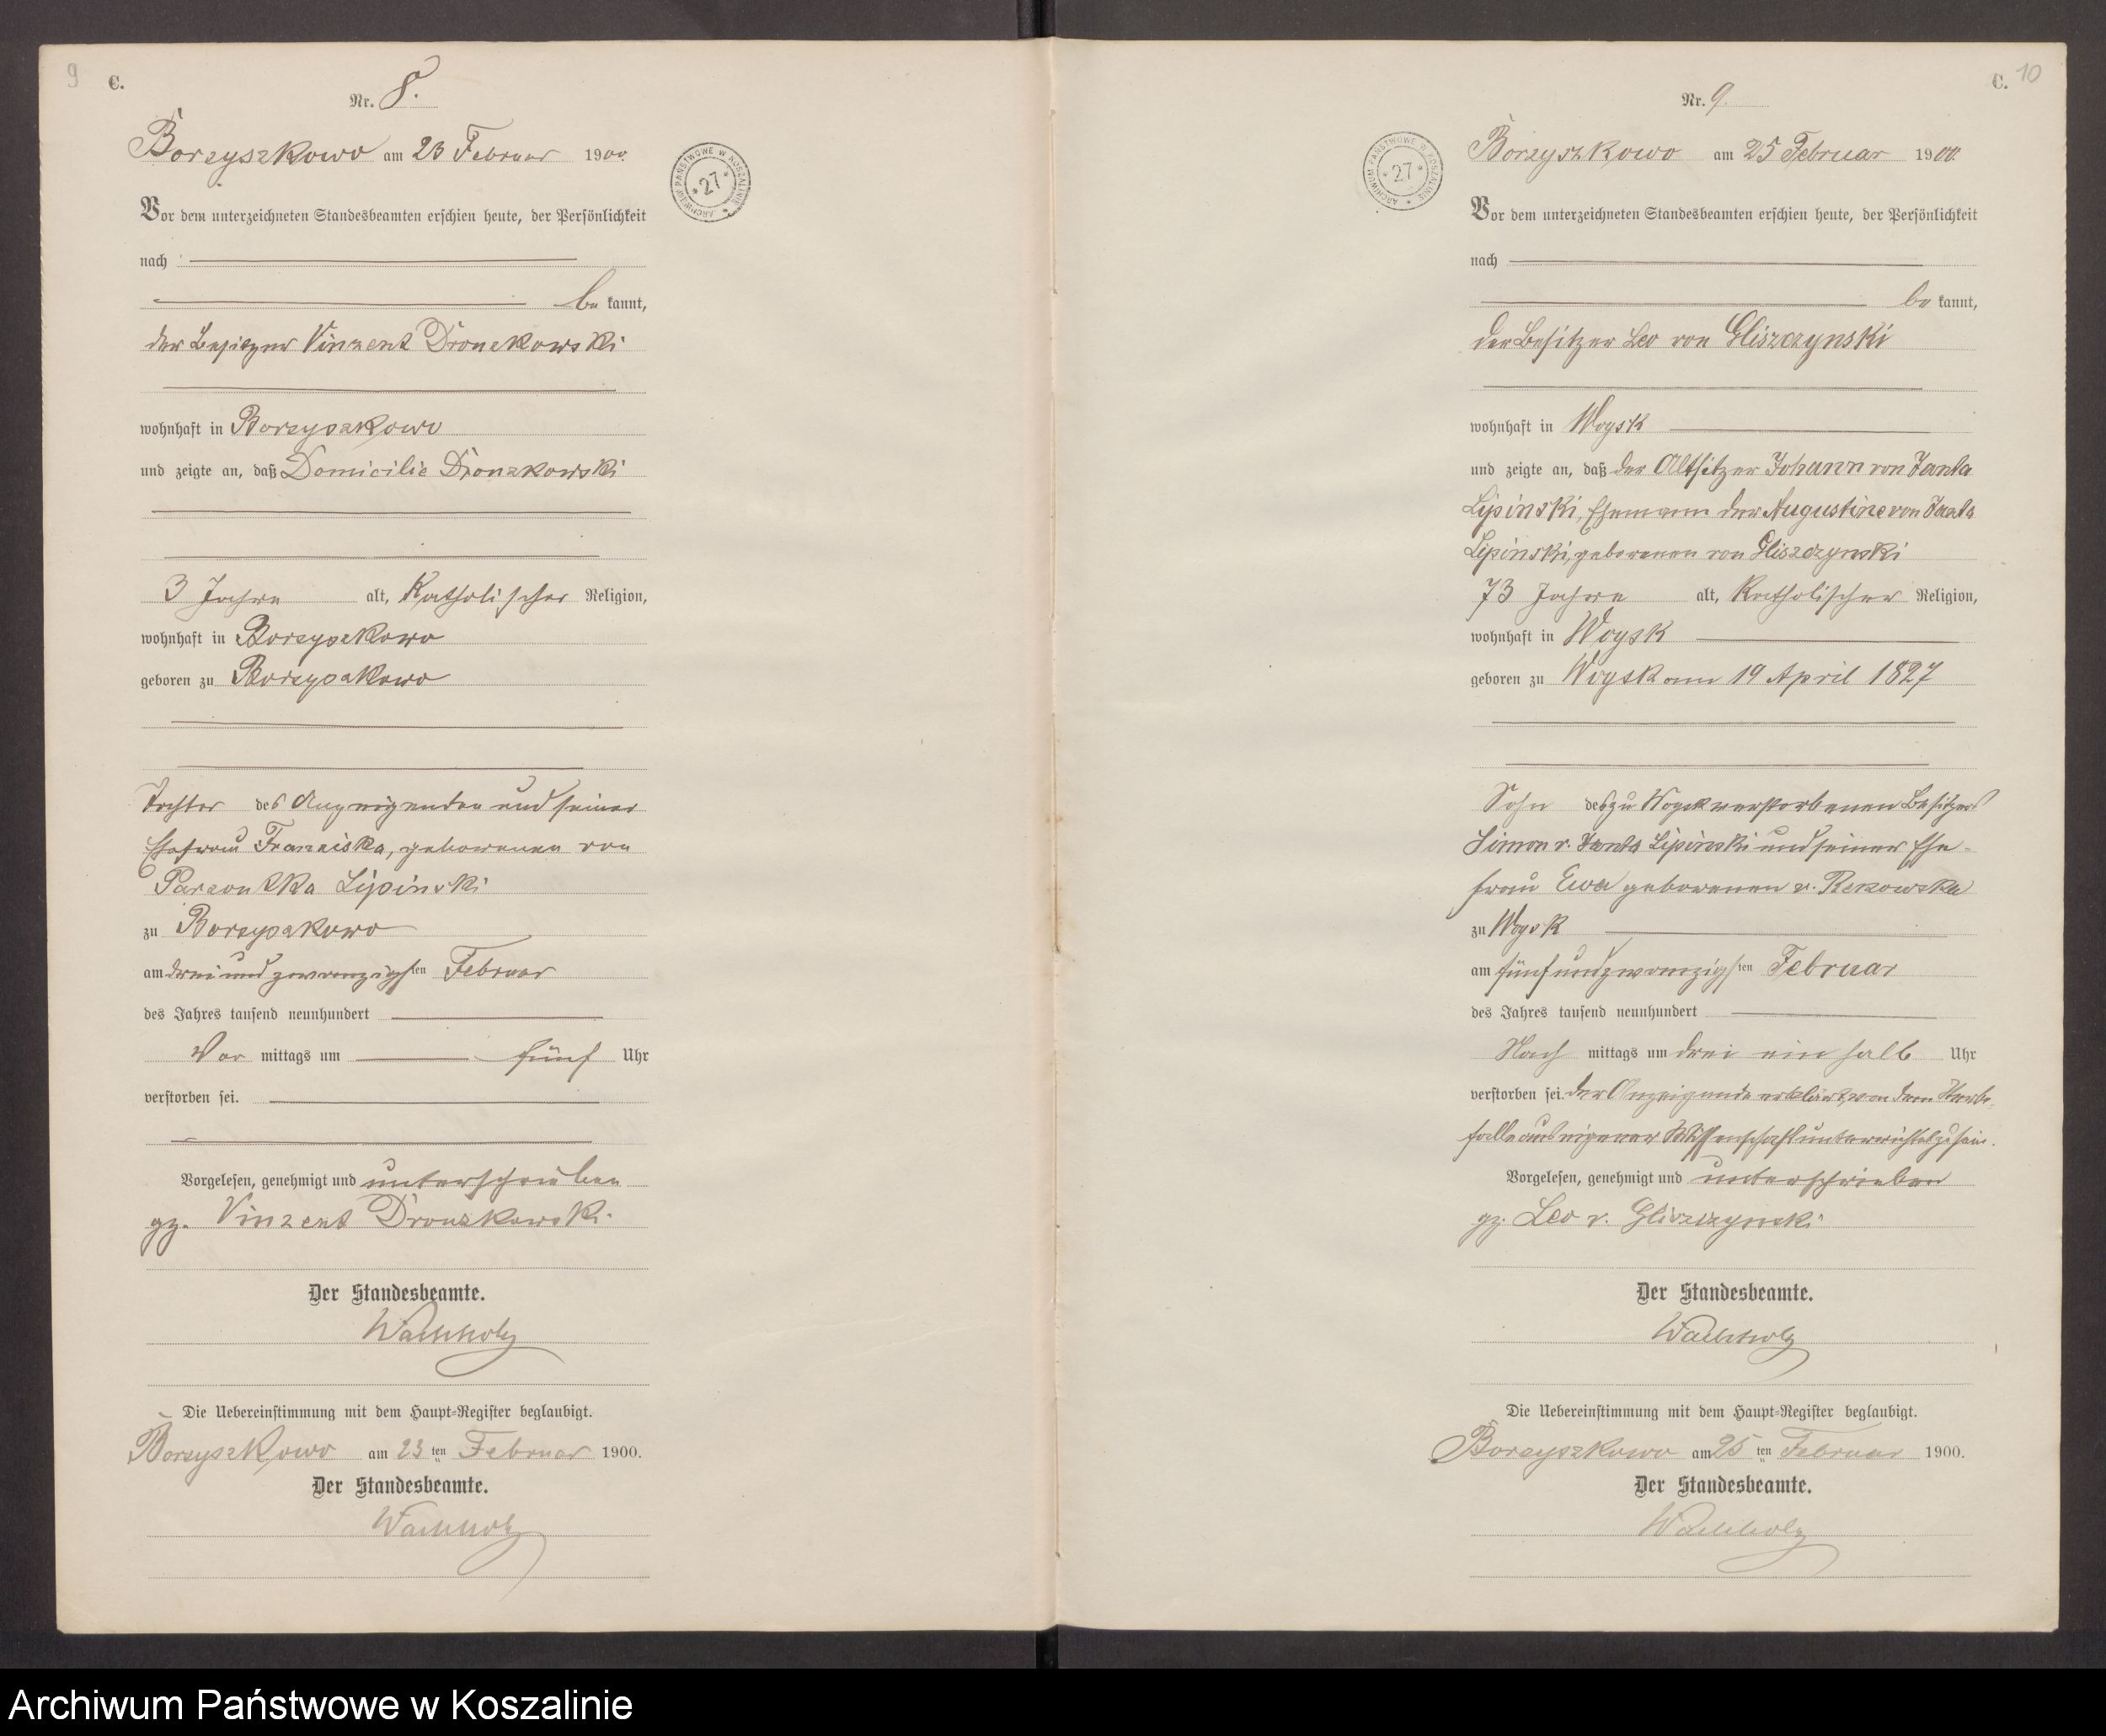 9
C.
Nr. 8.
Borzyszkowo am 23 Februar 1900.
Vor dem unterzeichneten Standesbeamten erschien heute, der Persönlichkeit
nach
be kannt,
der Besitzer Vinzent Dronzkowski
wohnhaft in Borzyszkowo
und zeigte an, daß Domicilie Dronzkowski
3 Jahre alt, Katholischer Religion,
wohnhaft in Borzyszkowo
geboren zu Borzyszkowo
Tochter des Anzeigenden und seiner
Ehefrau Franziska, geborenen von
Parzontka Lipinski
zu Borzyszkowo
am drei und zwanzigsten Februar
des Jahres tausend neunhundert
Vor mittags um fünf Uhr
verstorben sei.
Vorgelesen, genehmigt und unterschrieben
gz. Vinzent Dronzkowski
Der Standesbeamte.
Wachholz
Die Uebereinstimmung mit dem Haupt-Register beglaubigt.
Borzyszkowo am 23 ten Februar 1900.
Der Standesbeamte.
Wachholz
ARCHIWUM PAŃSTWOWE W KOSZALINIE
* 27 *
C. 10
Nr. 9.
Borzyszkowo am 25 Februar 1900.
Vor dem unterzeichneten Standesbeamten erschien heute, der Persönlichkeit
nach
be kannt,
der Besitzer Leo von Gliszczynski
wohnhaft in Woysk
und zeigte an, daß der Altsitzer Johann von Janta
Lipinski, Ehemann der Augustine von Janta
Lipinski, geborenen von Gliszczynski
73 Jahre alt, Katholischer Religion,
wohnhaft in Woysk
geboren zu Woysk am 19 April 1827
Sohn des zu Woysk verstorbenen Besitzers
Simon v. Janta Lipinski und seiner Ehe-
frau Ewa geborenen v. Rekowska
zu Woysk
am fünf und zwanzigsten Februar
des Jahres tausend neunhundert
Nach mittags um drei ein halb Uhr
verstorben sei. der Anzeigende erklärt, von dem Sterbe-
falle aus eigener Wissenschaft unterrichtet zu sein.
Vorgelesen, genehmigt und unterschrieben
gz. Leo v. Gliszczynski
Der Standesbeamte.
Wachholz
Die Uebereinstimmung mit dem Haupt-Register beglaubigt.
Borzyszkowo am 25 ten Februar 1900.
Der Standesbeamte.
Wachholz
ARCHIWUM PAŃSTWOWE W KOSZALINIE
* 27 *
Archiwum Państwowe w Koszalinie